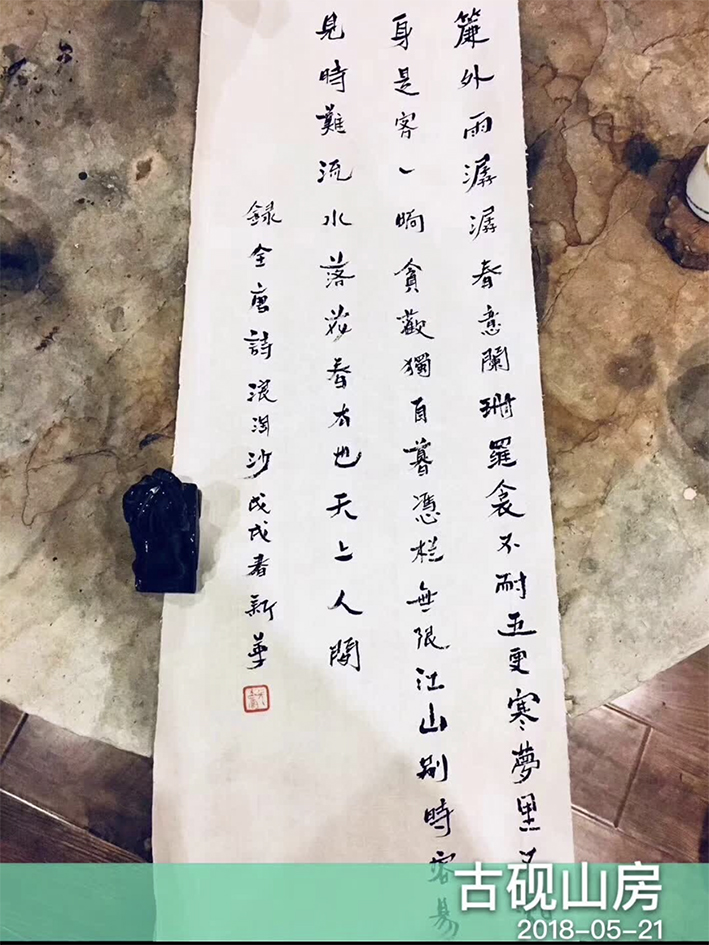 簾外雨潺潺春意闌珊羅衾不耐五更寒夢里不知
身是客一晌貪歡獨自暮憑栏無限江山别時容易
見時難流水落花春去也天上人間
録全唐詩浪淘沙戊戌春新華
古砚山房
2018-05-21